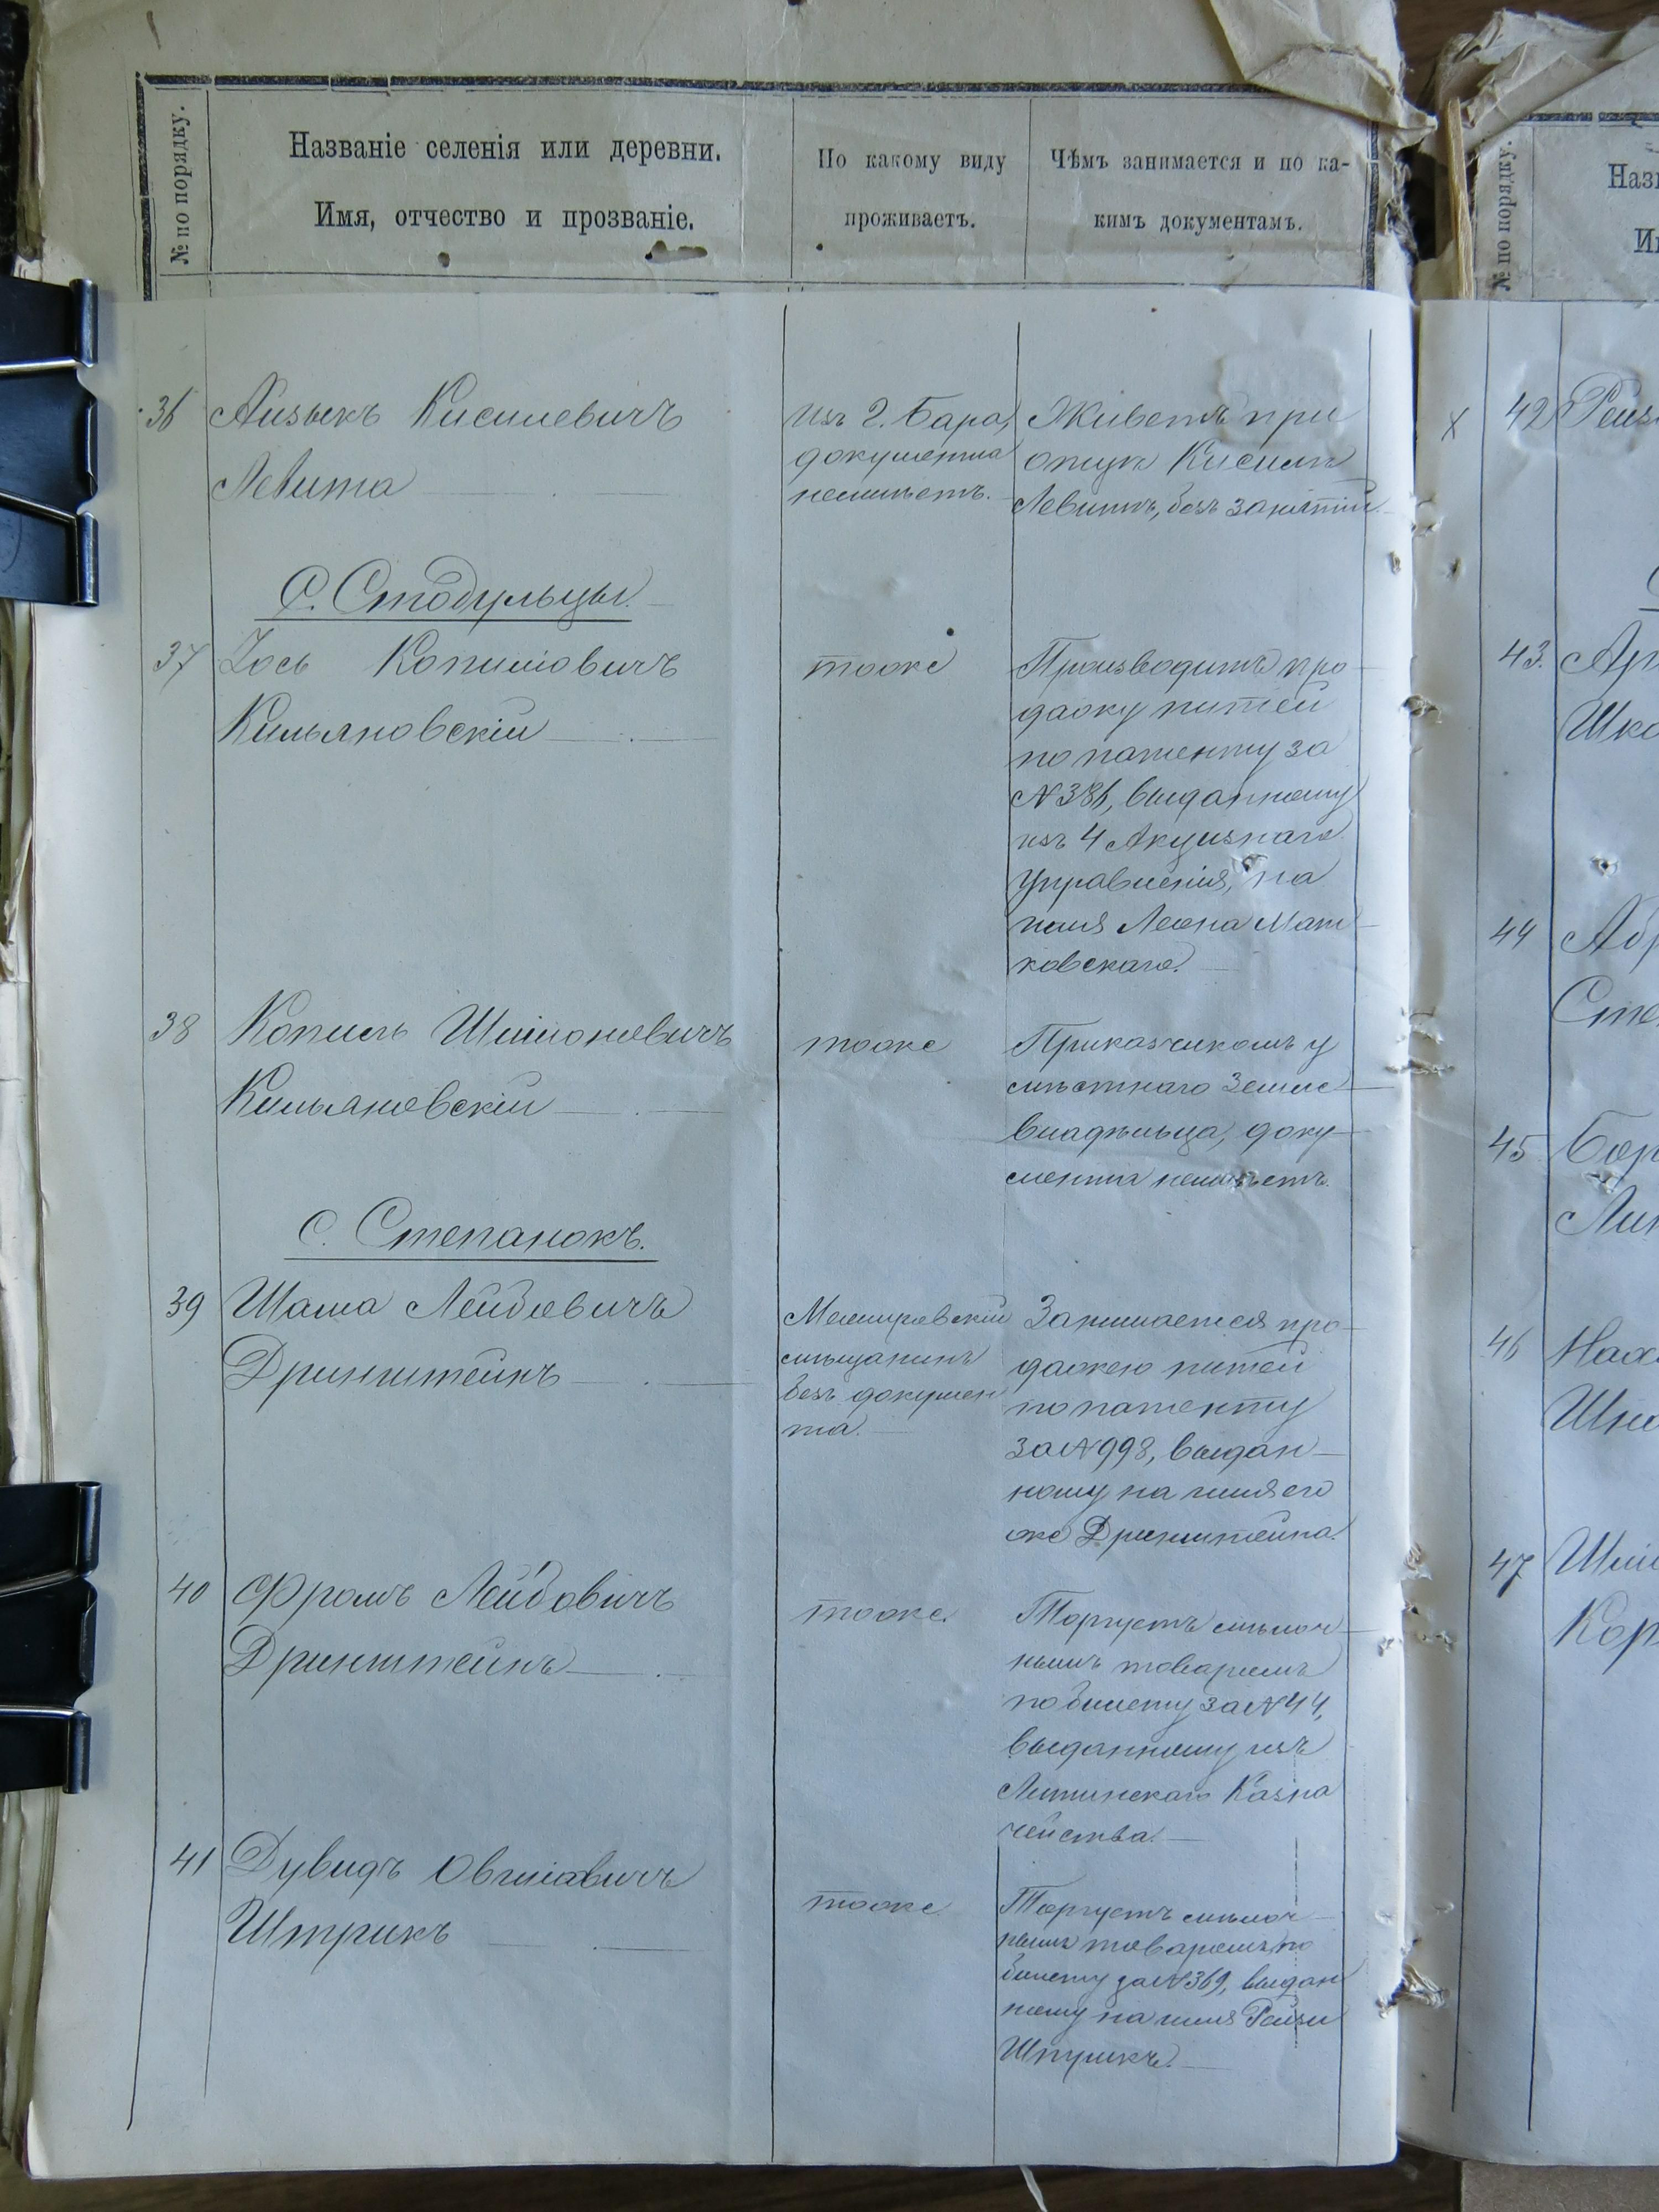 № по порядку.
Названіе селенія или деревни.
Имя, отчество и прозваніе.
По какому виду
проживаетъ.
Чѣмъ занимается и по ка-
кимъ документамъ.
36
Айзыкъ Кисилевичъ
Левита
изъ г. Бара,
документа
неимѣетъ.
Живетъ при
отцѣ Кисилѣ
Левитѣ, безъ занятій.
С. Стодульцы.
37
Іось Копиловичъ
Кильяновскій
тоже
Производитъ про-
дажу питей
по патенту за
№386, выданному
изъ 4 Акцизнаго
Управленія, на
имя Леона Мат-
ковскаго.
38
Копель Шимоновичъ
Кильяновскій
тоже
Приказчикомъ у
мѣстнаго Земле-
владѣльца, доку-
мента неимѣетъ.
С. Степанокъ.
39
Шама Лейбовичъ
Дринштейнъ
Межировскій
мѣщанинъ
безъ докумен
та.
Занимается про-
дажею питей
по патенту
за №998, выдан-
ному на имя его
же Дринштейна.
40
Фроимъ Лейбовичъ
Дринштейнъ
тоже.
Торгуетъ мѣлоч-
нымъ товаромъ
по билету за №44,
выданному изъ
Литинскаго Казна
чейства.
41
Дувидъ Овшіавичъ
Штрикъ
тоже
Торгуетъ мѣлоч-
нымъ товаромъ по
билету за №369, выдан
ному на имя Рейзи
№ по порядку.
Назв
Им
х
42
Рейз
43.
Шко
44
Абр
Сте
45
Бор
46
47
Кор